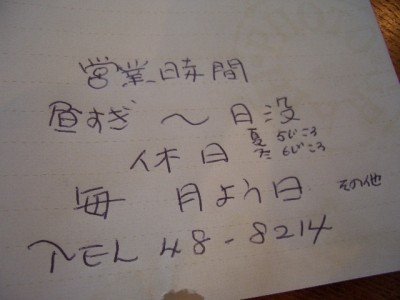 営業時間
昼すぎ 〜 日没
夏 5じころ
冬 6じころ
休日
毎 月よう日 その他
TEL 48-8214